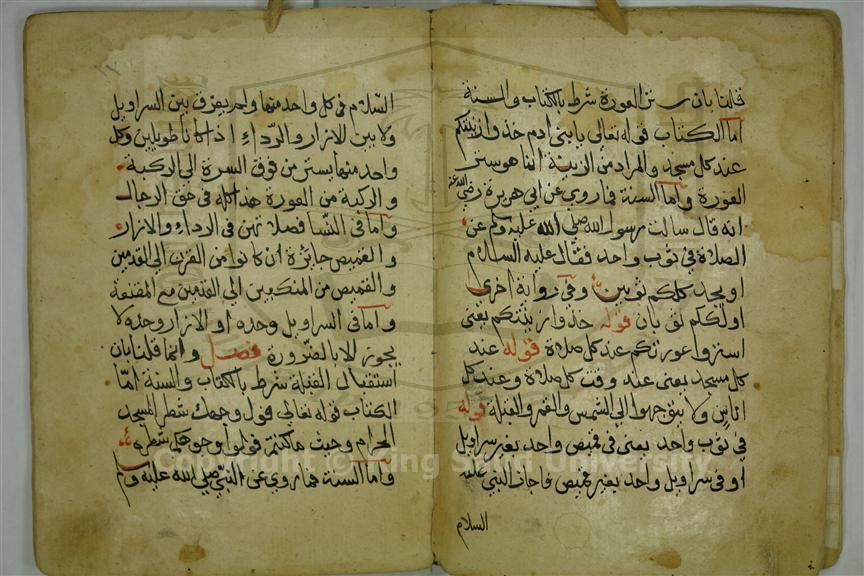 قلنا بان ستر العورة شرط بالكتاب والسنة
اما الكتاب قوله تعالى يا بنى ادم خذوا زينتكم
عند كل مسجد والمراد من الزينة انما هو ستر
العورة واما السنة فما روي عن ابي هريرة رضي الله عنه
انه قال سالت رسول الله صلي الله عليه وسلم عن
الصلاة في ثوب واحد فقال عليه السلام
او يجد كلكم ثوبين وفي رواية اخرى
اولكلكم ثوبان قوله خذوا زينتكم يعنى
استروا عورتكم عند كل صلاة قوله عند
كل مسجد يعنى عند وقت كل صلاة وعند كل
اناس ولا يتوجهوا الي الشمس والقمر والقبلة قوله
في ثوب واحد يعنى في قميص واحد بغير سراويل
او في سراويل واحد بغير قميص فاجاز النبي عليه
السلام
السلام في كل واحد منهما ولم يفرق بين السراويل
ولا بين الازار والرداء اذا كانا طويلين وكل
واحد منهما يستر من فوق السرة الي الركبة
والركبة من العورة هذا كله في حق الرجال
واما في النسا فصلاتهن في الرداء والازار
والقميص جائزة ان كانوا من القرن الي القدمين
والقميص من المنكبين الي القدمين مع المقنعة
واما في السراويل وحده او الازار وحده لا
يجوز الا بالضرورة فصل وانما قلنا بان
استقبال القبلة شرط بالكتاب والسنة امّا
الكتاب قوله تعالى فول وجهك شطر المسجد
الحرام وحيث ما كنتم فولوا وجوهكم شطره
واما السنة فما روي عن النبي صلي الله عليه وسلم
Copyright © King Saud University